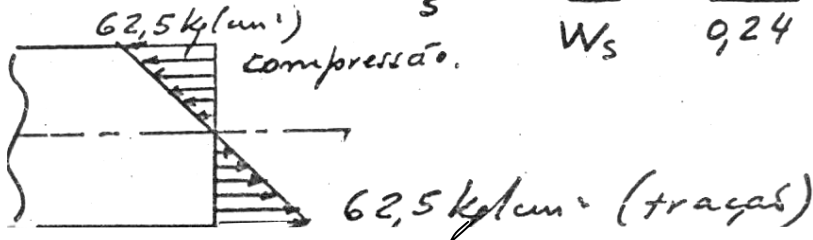 62,5 kg/cm²)
s
Ws 0,24
compressão.
62,5 kg/cm² (tração)